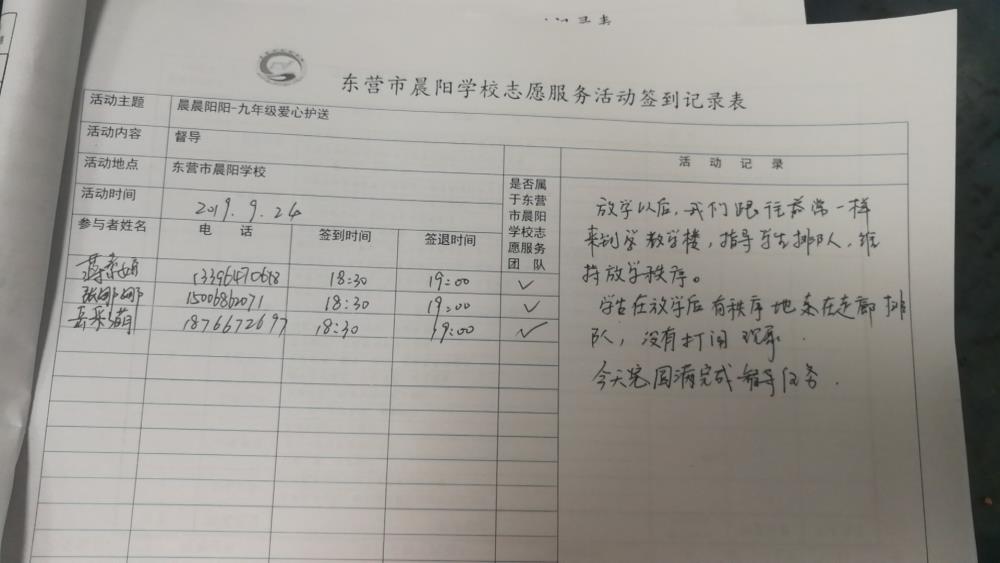 东营市晨阳学校志愿服务活动签到记录表
活动主题 晨晨阳阳-九年级爱心护送
活动内容 督导
活动地点 东营市晨阳学校
活动时间 2019.9.24
是否属于东营市晨阳学校志愿服务团队
活动记录
参与者姓名 电话 签到时间 签退时间
18:30 19:00 ✓
张娜娜 15006862071 18:30 19:00 ✓
1876672697 18:30 19:00 ✓
放学以后,我们跟往常一样
来到学教学楼,指导学生排队,维
持放学秩序。
学生在放学后有秩序地来在走廊排
队,没有打闹现象.
今天圆满完成督导任务.